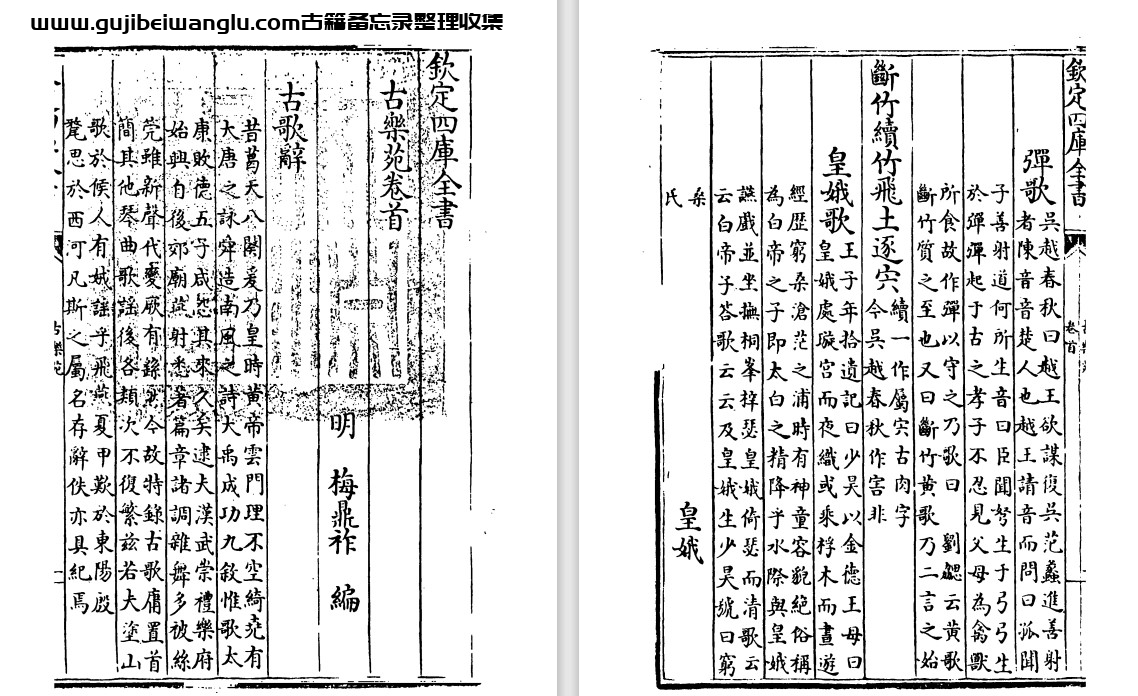 www.gujibeiwanglu.com古籍备忘录整理收集
欽定四庫全書
古樂苑卷首
明 梅鼎祚 編
古歌辭
昔葛天八闋爰乃皇時黃帝雲門理不空綺堯有
大唐之詠舜造南風之詩大禹成功九敘惟歌太
康敗德五子咸怨其來久矣逮夫漢武崇禮樂府
始興自後郊廟燕射悉著篇章諸調雜舞多被絲
筦雖新聲代變厥有今故特錄古歌庸置首
簡其他琴曲歌謠後各類次不復繁兹若夫塗山
歌於候人有娀謠乎飛燕夏甲歎於東陽殷
氂思於西河凡斯之屬名存辭佚亦具紀焉
欽定四庫全書
卷首
彈歌
吳越春秋曰越王欲謀復吳范蠡進善射
者陳音音楚人也越王請音而問曰孤聞
子善射道何所生音曰臣聞弩生于弓弓生
於彈彈起于古之孝子不忍見父母為禽獸
所食故作彈以守之乃歌曰 劉勰云黃歌
斷竹質之至也又曰斷竹黃歌乃二言之始
斷竹續竹飛土逐宍
續一作屬宍古肉字
今吳越春秋作害非
皇娥歌
王子年拾遺記曰少昊以金德王母曰
皇娥處璇宮而夜織或乘桴木而晝遊
經歷窮桑滄茫之浦時有神童容貌絕俗稱
為白帝之子即太白之精降乎水際與皇娥
讌戲並坐撫桐峯梓瑟皇娥倚瑟而清歌云
云白帝子荅歌云云及皇娥生少昊號曰窮
桑
氏
皇娥